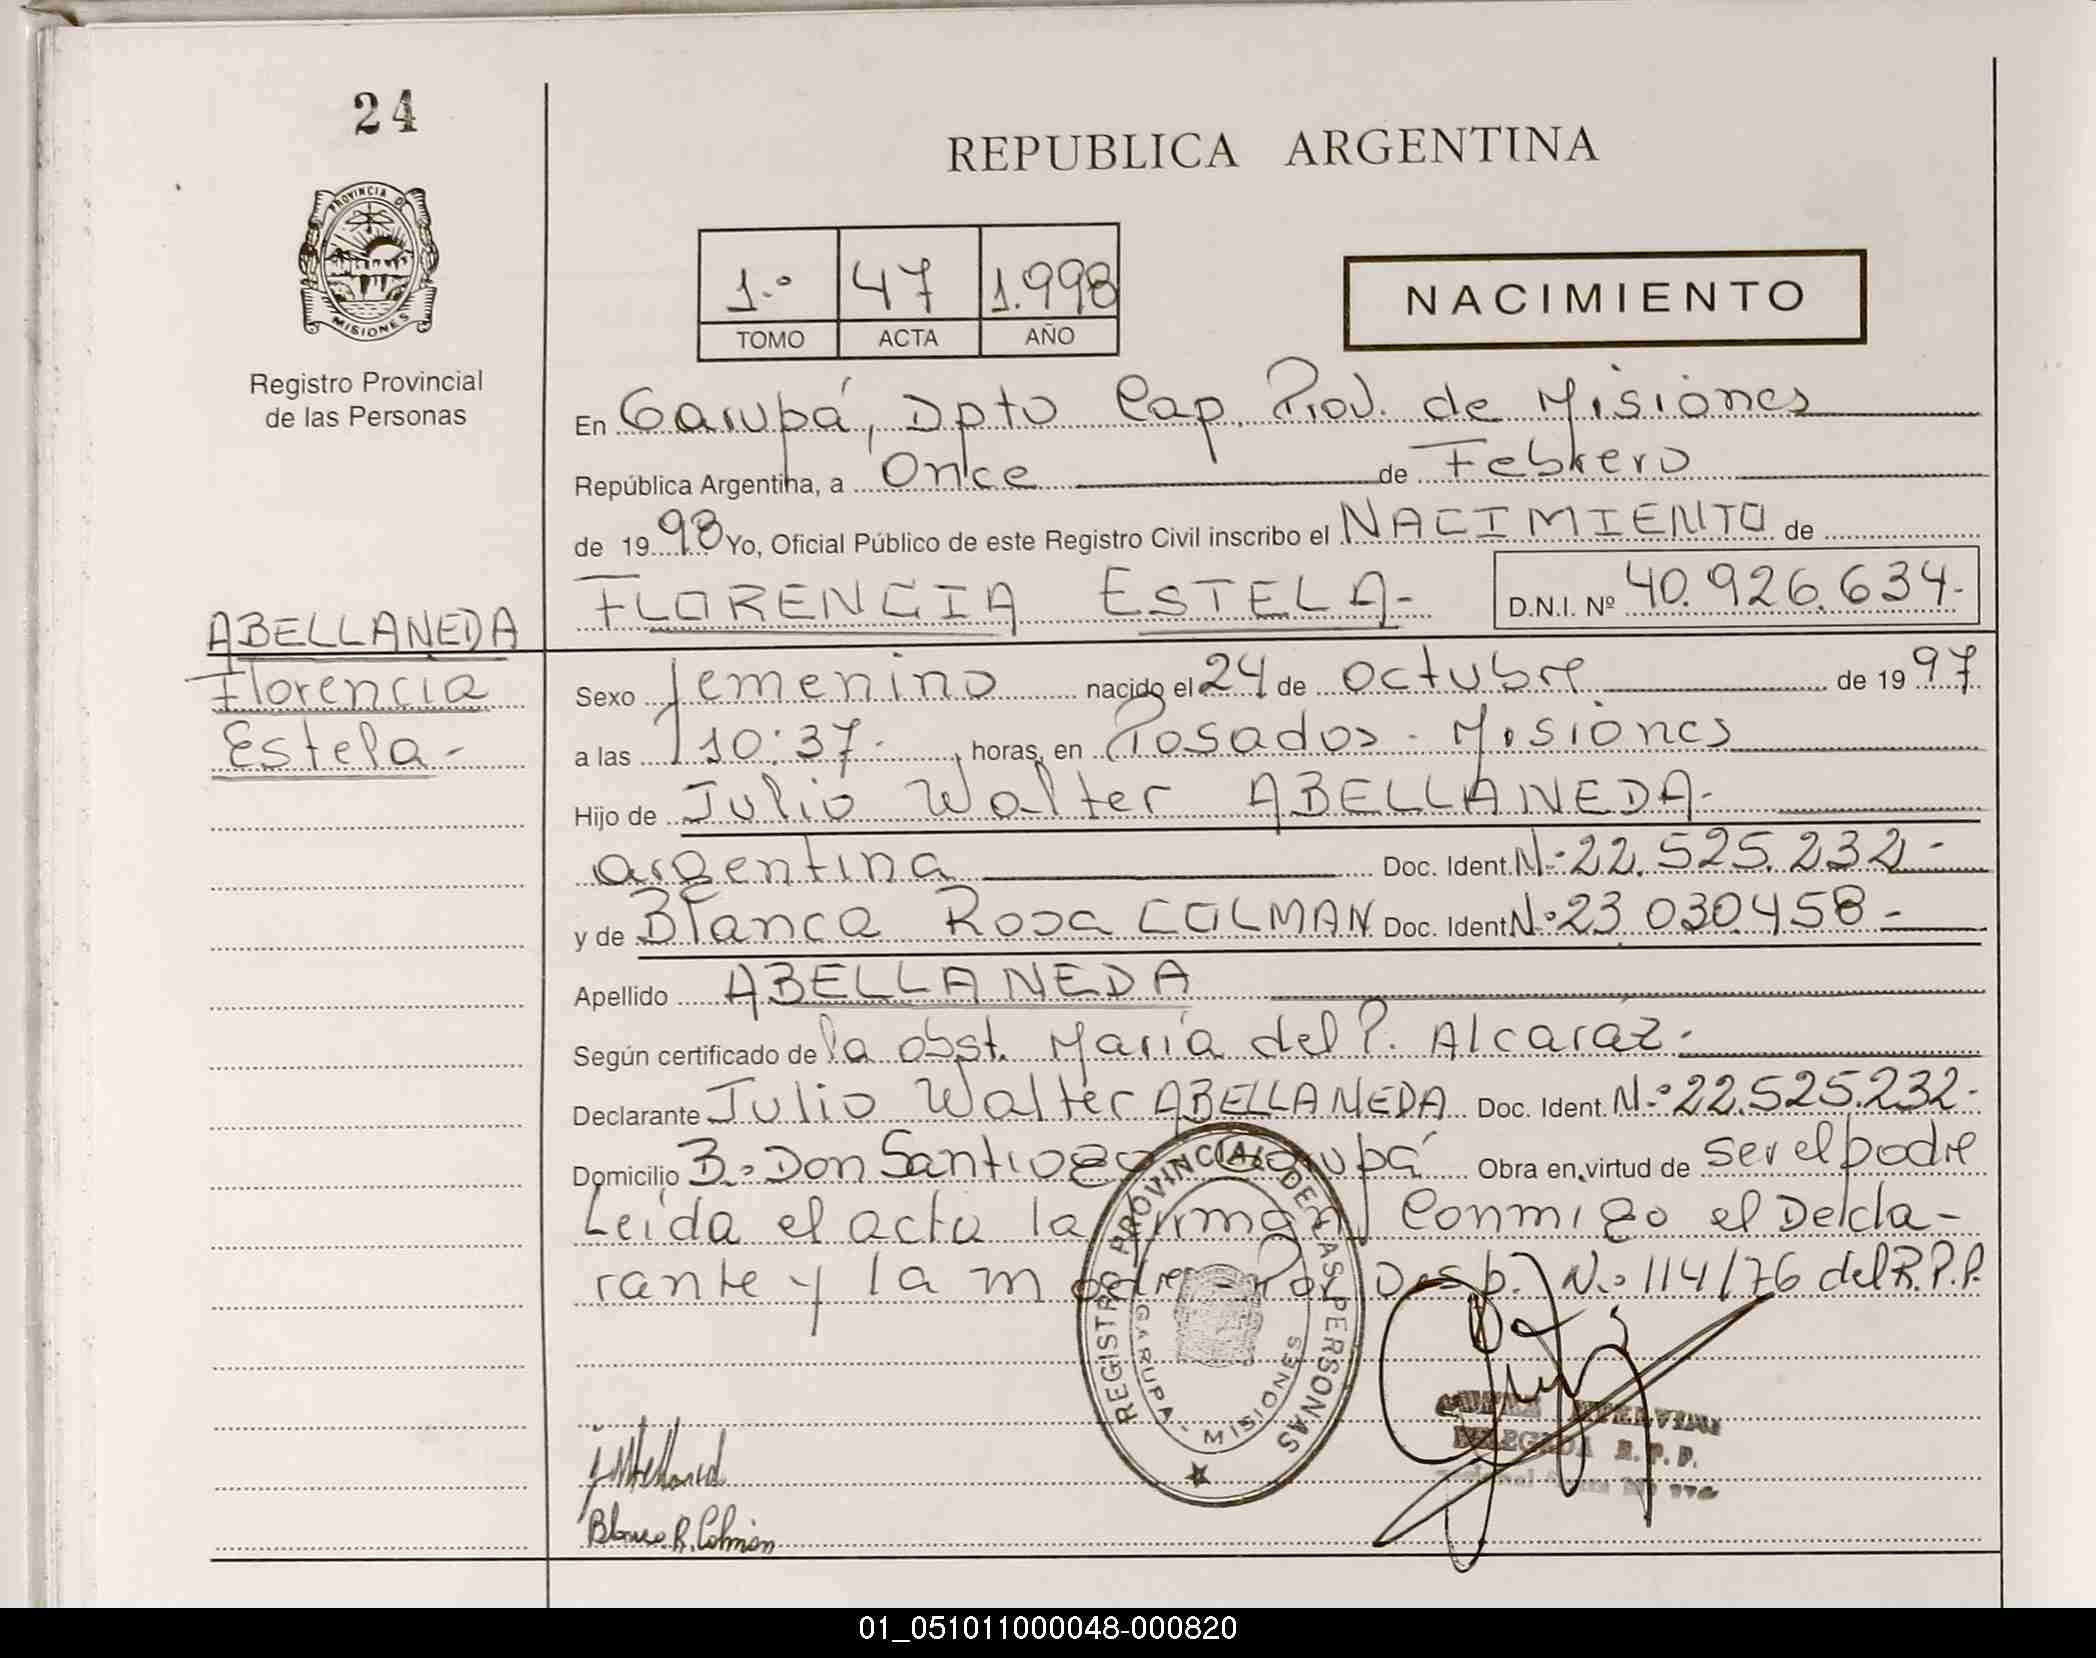 24
PROVINCIA DE
MISIONES
Registro Provincial
de las Personas
REPUBLICA ARGENTINA
1.º 47 1.998
TOMO ACTA AÑO
NACIMIENTO
En Garupá, Dpto Cap. Prov. de Misiones
República Argentina, a Once de Febrero
de 1998 Yo, Oficial Público de este Registro Civil inscribo el NACIMIENTO de
FLORENCIA ESTELA- D.N.I. Nº 40.926.634-
ABELLANEDA
Florencia
Estela-
Sexo femenino nacido el 24 de octubre de 1997
a las 10:37. horas, en Posadas - Misiones
Hijo de Julio Walter ABELLANEDA-
argentina Doc. Ident. N.º 22.525.232-
y de Blanca Rosa COLMAN Doc. Ident. N.º 23.030.458-
Apellido ABELLANEDA
Según certificado de la obst. María del P. Alcaráz-
Declarante Julio Walter ABELLANEDA Doc. Ident. N.º 22.525.232-
Domicilio B.º Don Santiago Garupá Obra en virtud de ser el padre
Leída el acta la firman Conmigo el Decla-
rante y la madre - Por Disp. N.º 114/76 del R.P.P.
REGISTRO PROVINCIAL DE LAS PERSONAS
GARUPA - MISIONES
DELEGADA R. P. P.
Blanca R. Colmán
01_051011000048-000820